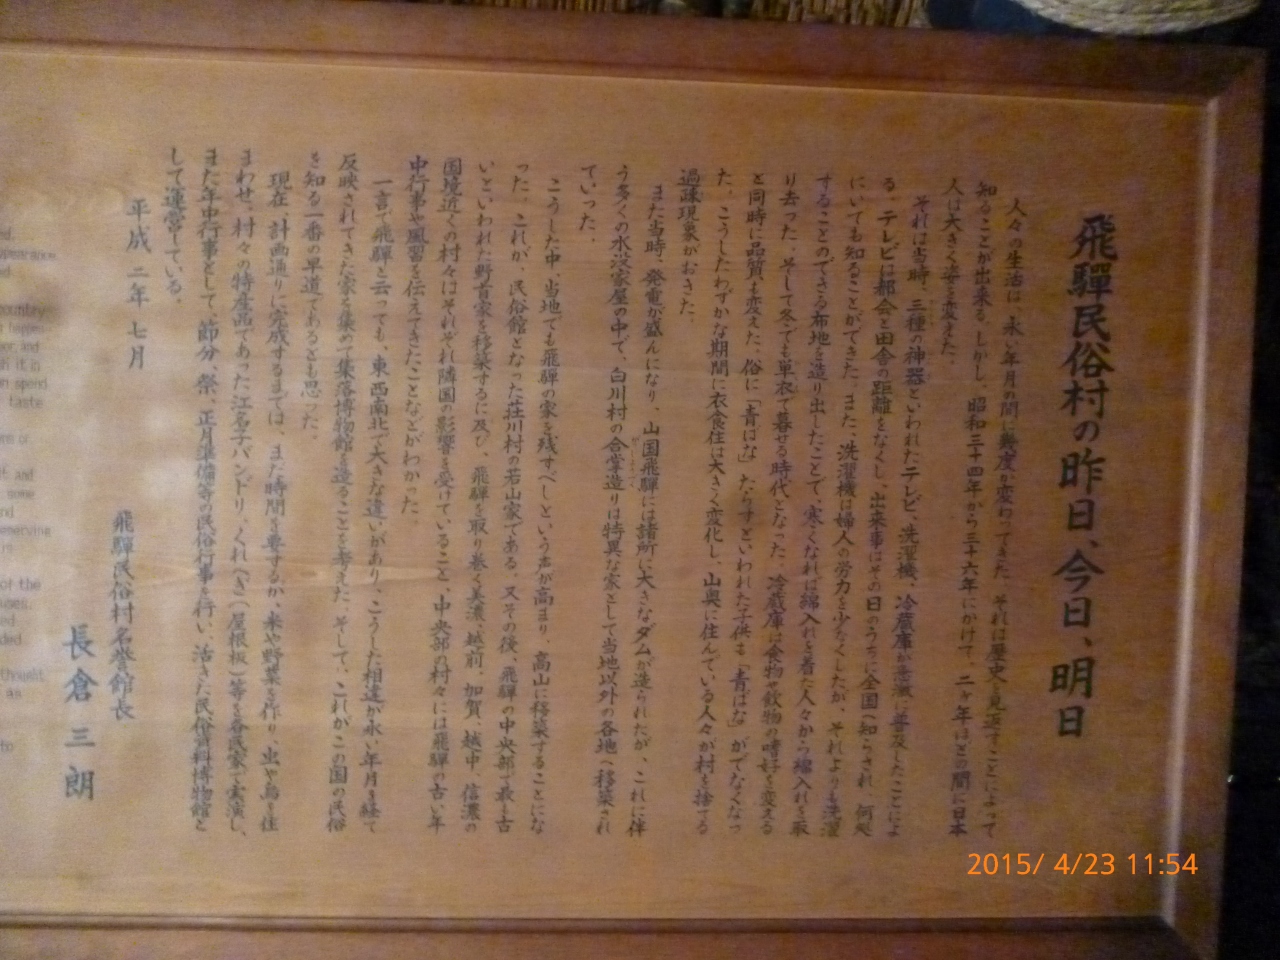 飛驒民俗村の昨日、今日、明日
人々の生活は、永い年月の間に幾度か変わってきた。それは歴史を見返すことによって
知ることが出来る。しかし、昭和三十四年から三十六年にかけて、二ヶ年ほどの間に日本
人は大きく姿を変えた。
それは当時、三種の神器といわれたテレビ、洗濯機、冷蔵庫が急激に普及したことによ
る。テレビは都会と田舎の距離をなくし、出来事はその日のうちに全国へ知らされ、何処
にいても知ることができた。また、洗濯機は婦人の労力を少なくしたが、それよりも洗濯
することのできる布地を造り出したことで、寒くなれば綿入れを着た人々から綿入れを取
り去った。そして冬でも単衣で暮せる時代となった。冷蔵庫は食物や飲物の嗜好を変える
と同時に品質も変えた。俗に「青ばな」たらすといわれた子供も「青ばな」がでなくなっ
た。こうしたわずかな期間に衣食住は大きく変化し、山奥に住んでいる人々が村を捨てる
過疎現象がおきた。
また当時、発電が盛んになり、山国飛驒には諸所に大きなダムが造られたが、これに伴
う多くの水没家屋の中で、白川村の合掌造りは特異な家として当地以外の各地へ移築され
ていった。
こうした中、当地でも飛驒の家を残すべしという声が高まり、高山に移築することにな
った。これが、民俗館となった荘川村の若山家である。又その後、飛驒の中央部で最も古
いといわれた野首家を移築するに及び、飛驒を取り巻く美濃、越前、加賀、越中、信濃の
国境近くの村々はそれぞれ隣国の影響を受けていること、中央部の村々には飛驒の古い年
中行事や風習を伝えてきたことなどがわかった。
一言で飛驒と云っても、東西南北で大きな違いがあり、こうした相違が永い年月を経て
反映されてきた家を集めて集落博物館を造ることを考えた。そして、これがこの国の民俗
を知る一番の早道であるとも思った。
現在、計画通りに完成するまでは、まだ時間を要するが、米や野菜を作り、虫や鳥を住
まわせ、村々の特産品であった江名子バンドリ、くれへぎ(屋根板)等を各民家で実演し、
また年中行事として、節分、祭、正月準備等の民俗行事を行い、活きた民俗資料博物館と
して運営している。
平成二年七月
飛驒民俗村名誉館長
長倉三朗
country
hopes
or, and
sh it in
en speed
taste
and
some
serving
of the
ded
thought
as
to